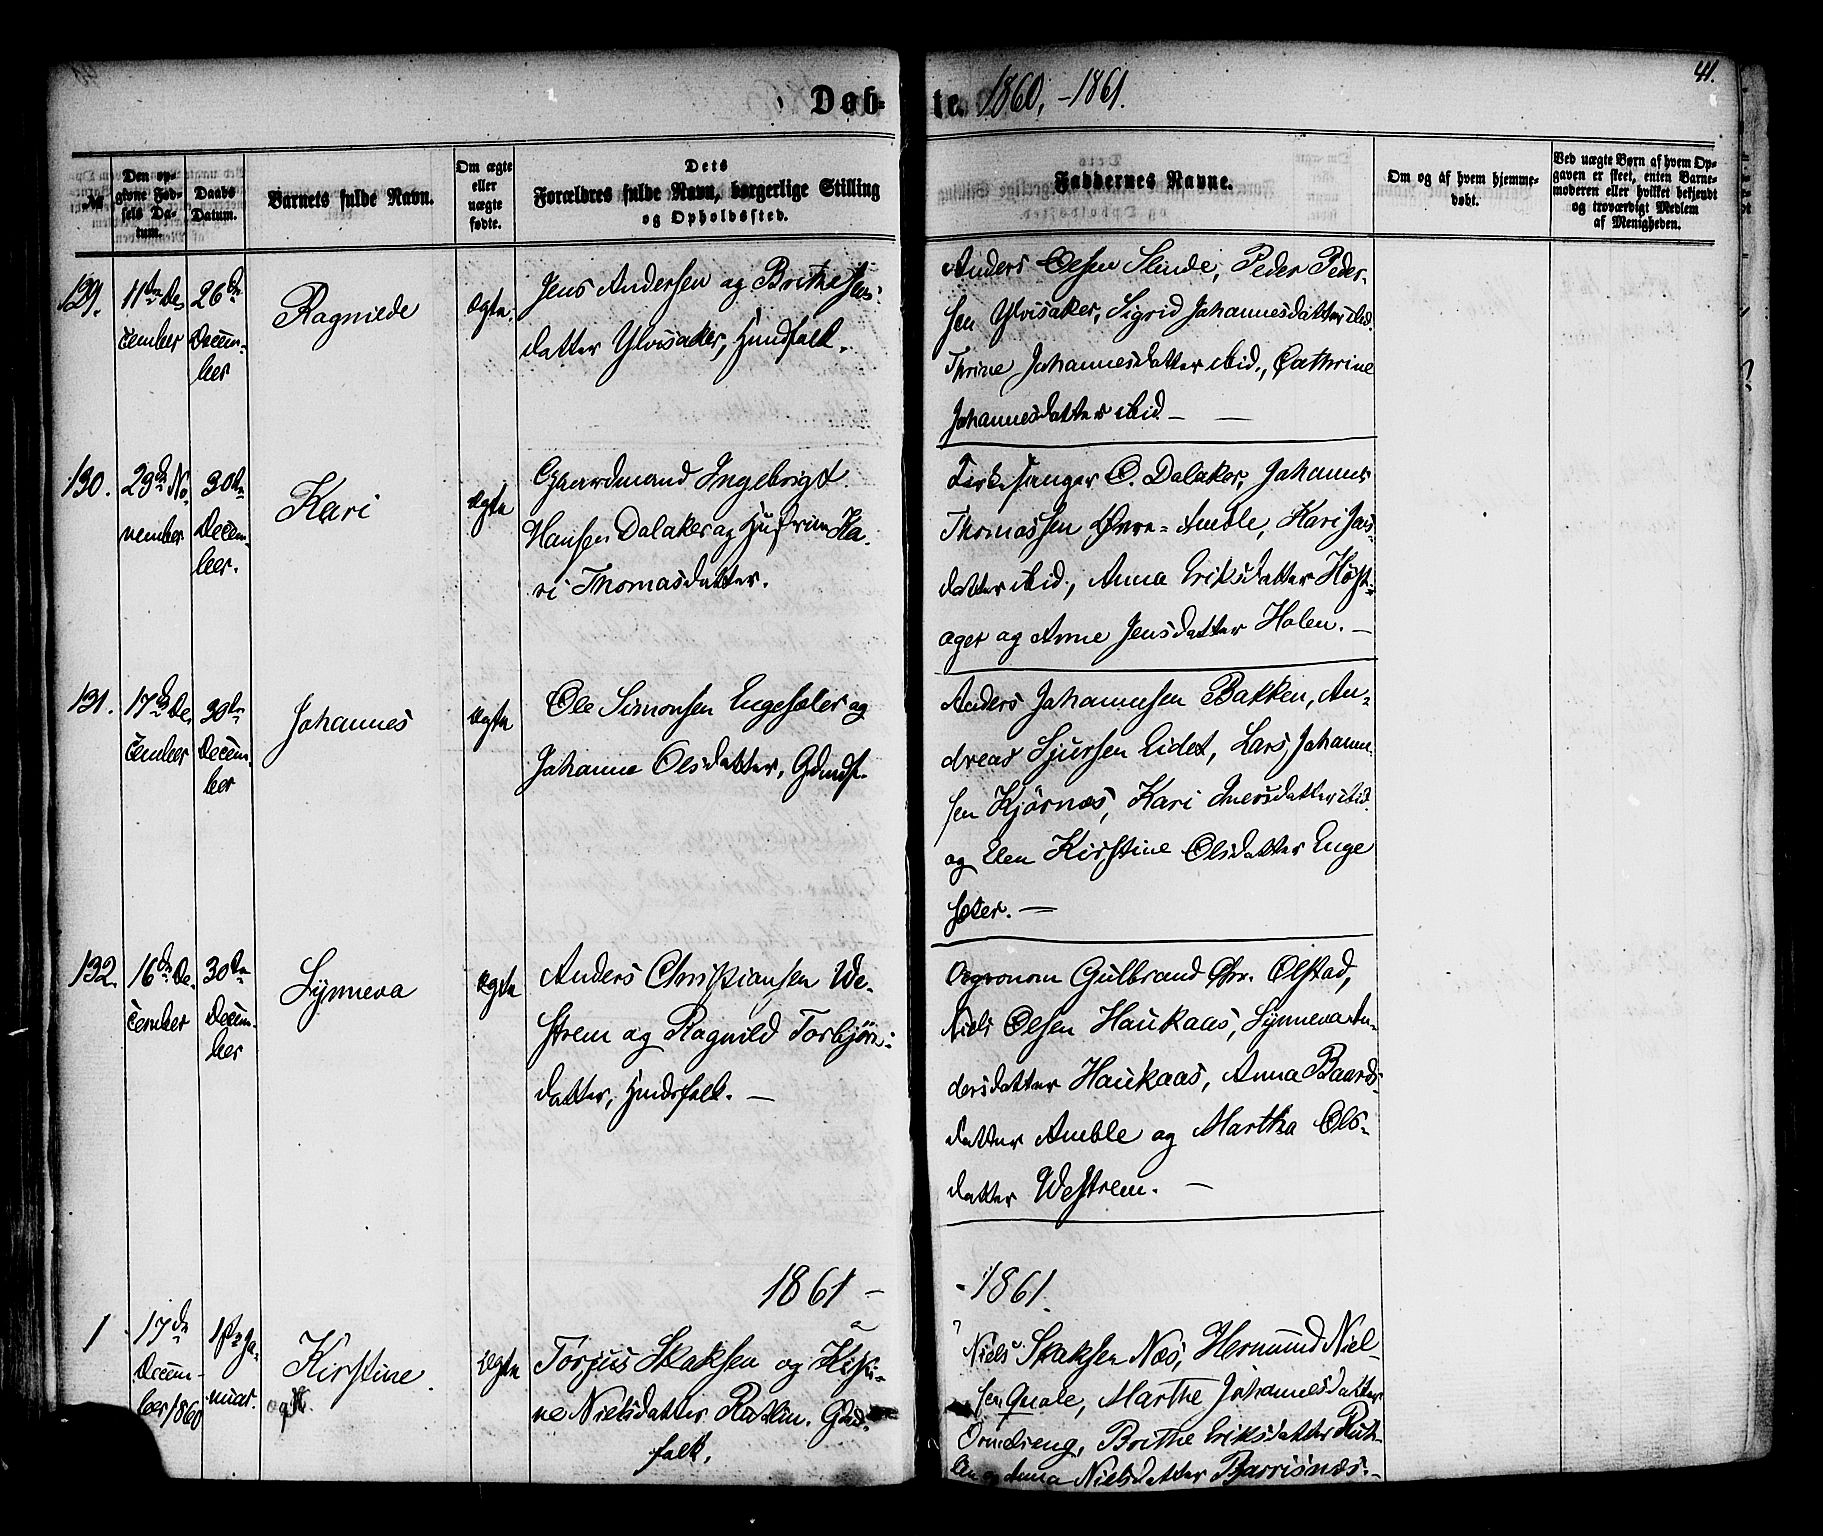 Døb-
te. 1860, -1861.
41.
№
Den op-
givne Fød-
sels Da-
tum.
Daabs
Datum.
Barnets fulde Navn.
Om ægte
eller
uægte
fødte.
Dets
Forældres fulde Navn, borgerlige Stilling
og Opholdssted.
Faddernes Navne.
Om og af hvem hjemme-
døbt.
Ved uægte Børn af hvem Op-
gaven er skeet, enten Barne-
moderen eller hvilket bekjendt
og troværdigt Medlem
af Menigheden.
129.
11te De-
cember
26de
Decem-
ber
Ragnilde
Ægte.
Jens Andersen og Brithe Jens-
datter Ylvisaker, Huusfolk.
Anders Olsen Slinde, Peder Peder-
sen Ylvisaker, Sigrid Johannesdatter ibid.
Thrine Johannesdatter ibid., Cathrine
Johannesdatter ibid —
130.
23de No-
vember
30te
Decem-
ber.
Kari
Ægte
Gaardmand Ingebrigt
Hansen Dalaker og Hustrue Ka-
ri Thomasdatter.
Kirkesanger O. Dalaker, Johannes
Thomassen Øvre-Amble, Kari Jens-
datter ibid., Anna Eriksdatter Høst-
ager og Anne Jensdatter Holen. —
131.
17de De-
cember
30te
Decem-
ber
Johannes
Ægte
Ole Simonsen Engesæter og
Johanne Olsdatter, Gdmdf.
Anders Johannesen Bakken, An-
dreas Sjursen Eidet, Lars Johann-
sen Kjørnæs, Kari Iversdatter ibid.
og Elen Kirstine Olsdatter Enge
sæter. —
132.
16de De-
cember
30te
Decem-
ber
Synneva
Ægte
Anders Christiansen We-
strem og Ragnild Torbjørn-
datter, Huusfolk. —
Agronom Gulbrand Chr. Olstad,
Niels Olsen Haukaas, Synneva An-
dersdatter Haukaas, Anna Baards-
datter Amble og Martha Ols-
datter Westrem. —
1861 —
- 1861.
1
17de
Decem-
ber 1860
1ste Ja-
nuar.
Kirstine.
Ægte
Torjus Staksen og Kirsti-
ne Nielsdatter Rutlin. Gaard-
folk.
Niels Staksen Næs, Hermund Niel-
sen Quale, Marthe Johannesdatter
Ormelseng, Brithe Eriksdatter Rut-
lin og Anna Nielsdatter Barsnæs. —